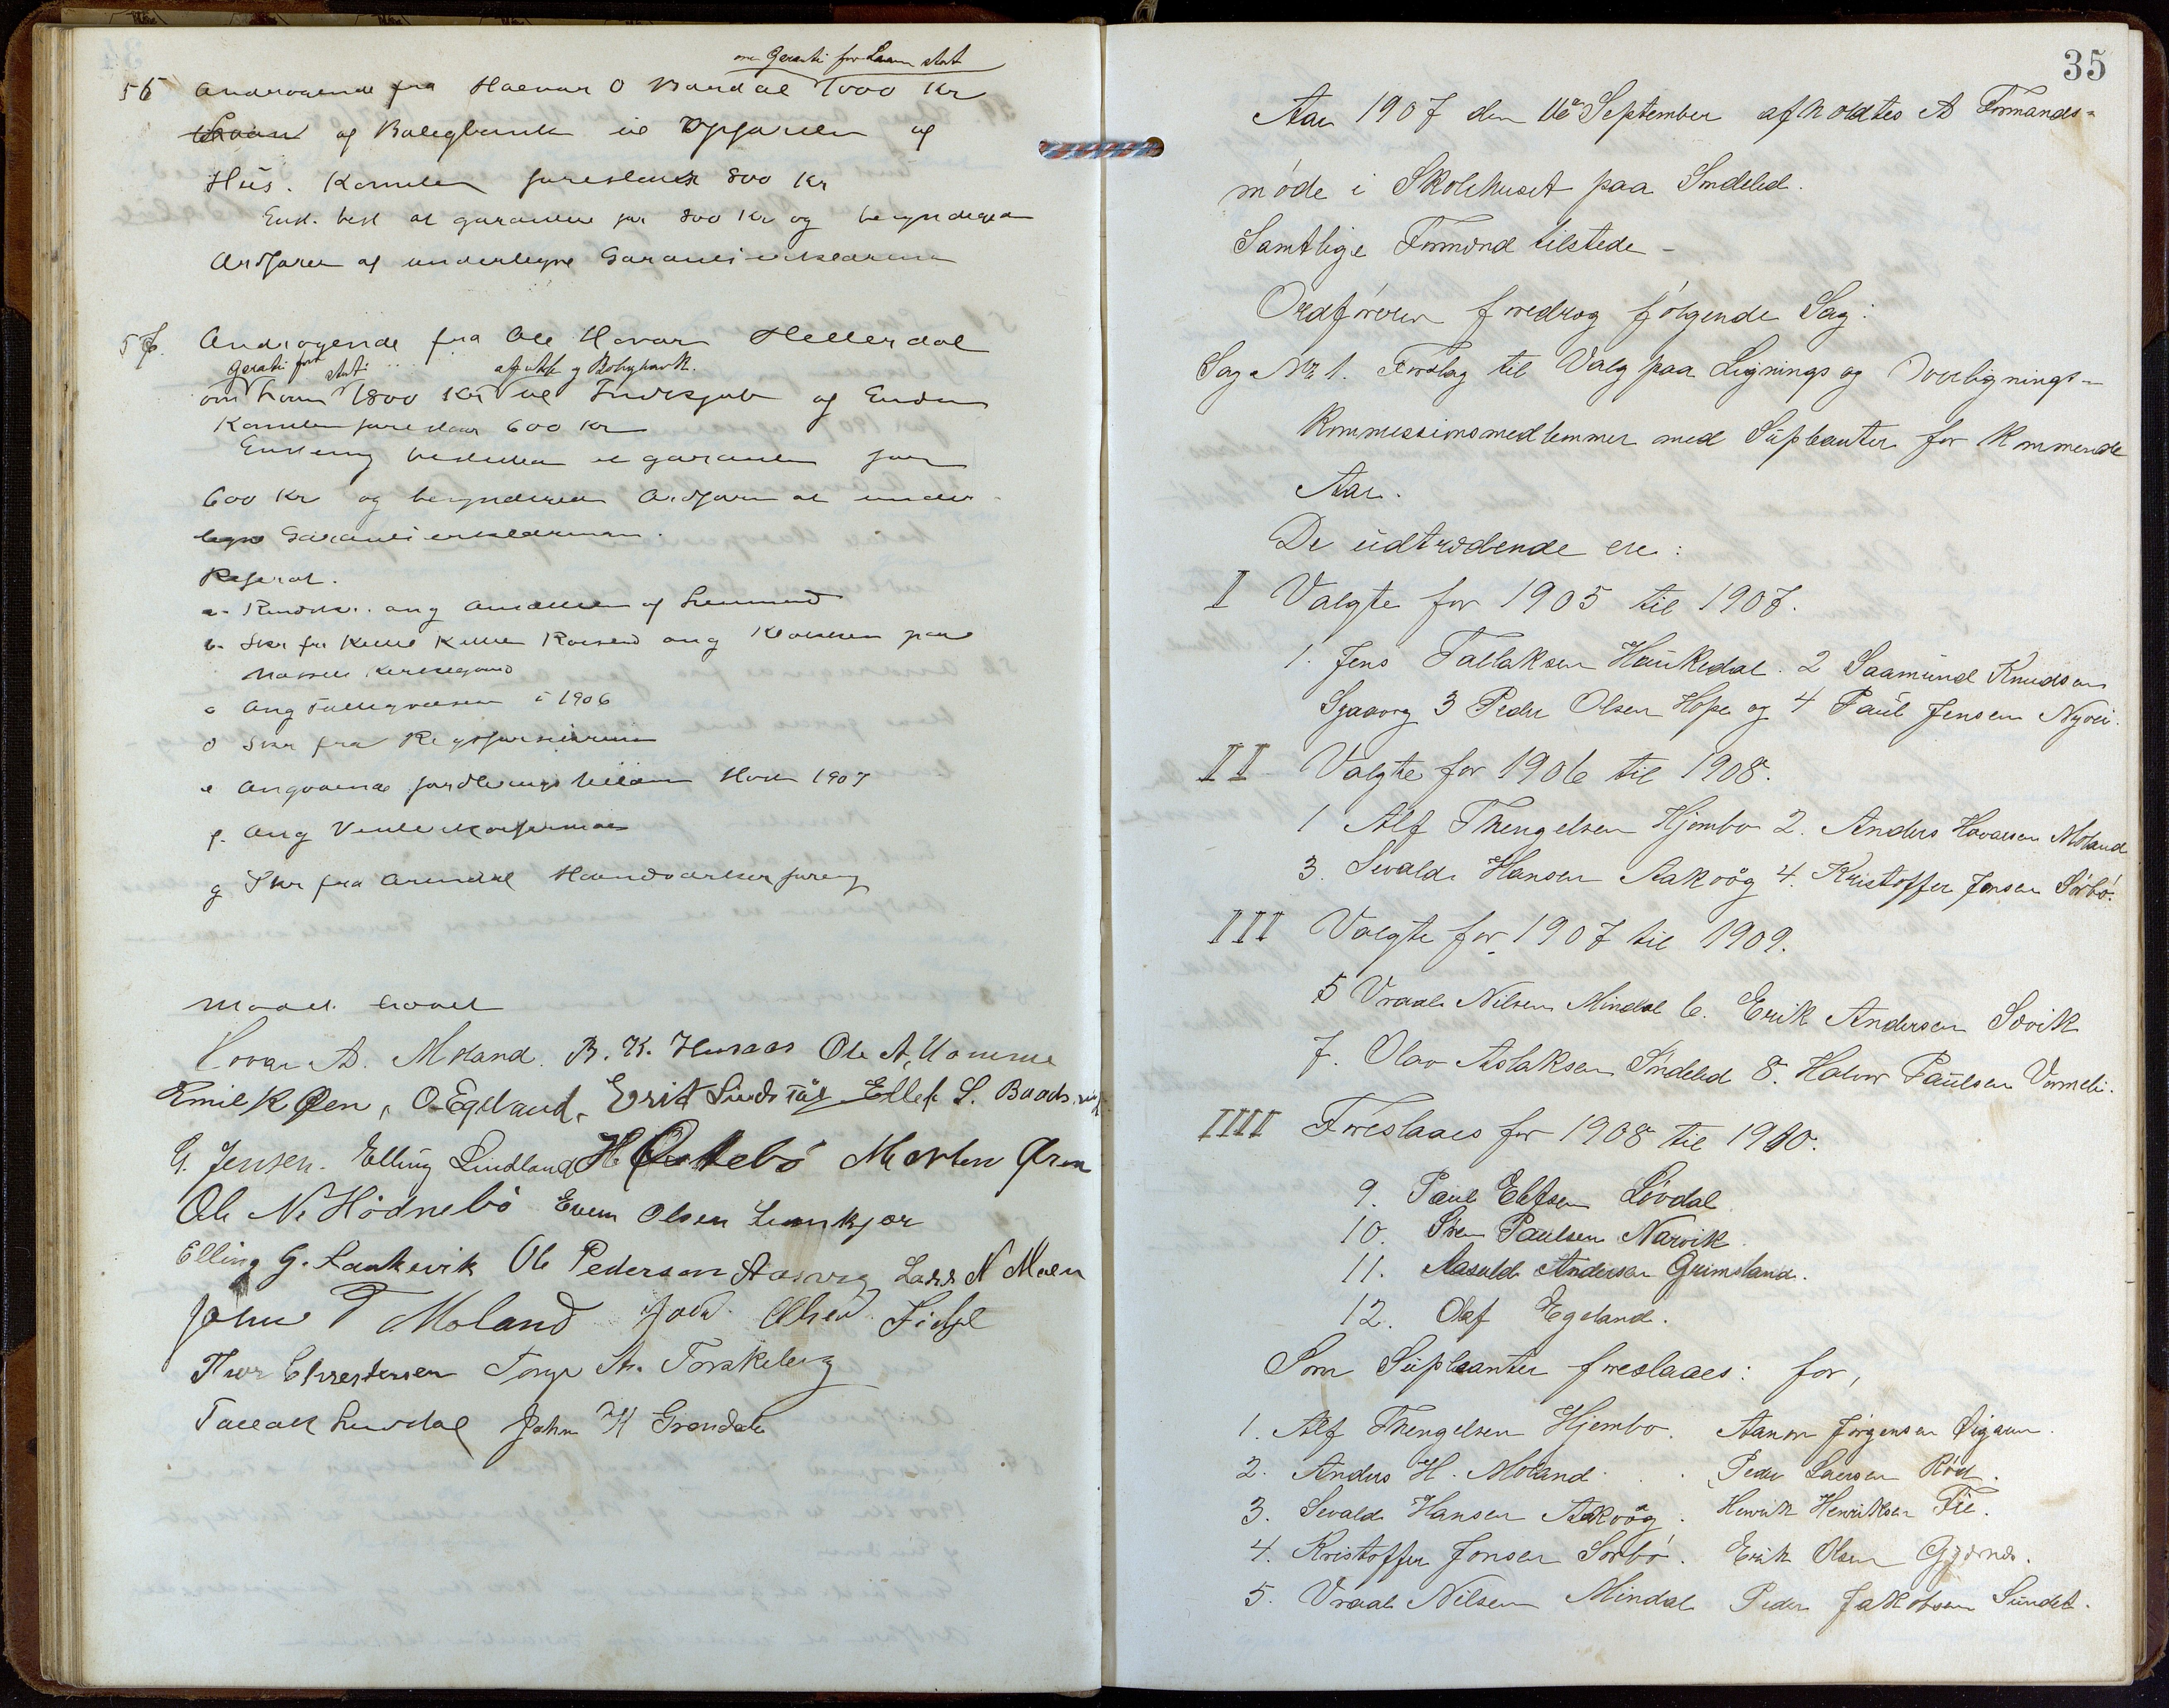 om Geranti for Laan stort
56 Androgende fra Halvor O Bærdal 1000 Kr
Laan af Boligbank til Opførelse af
Hus. Komiteen foreslaar 800 Kr
Enst. besl. at garantere for 800 Kr og bemyndigea
Ordføren at undertegne Garantierklæringen
57. Androgende fra Ole Havor Hellerdal
Geranti for stort af Arb og Boligbank.
om Laan 1800 Kr til Indkjøb af Eiendom
Komiteen foreslaar 600 Kr
Enstemmig besluttet at garantere for
600 Kr og bemyndiges Ordføren at under-
tegne Garantierklæringen.
Referat.
a. Rundskr. ang Ansættelse af Lensmænd
b. Skr fra ang paa
Kirkegaard
c Ang i 1906
d Skr fra
e Angaaende 1907
f. Ang
g Skr fra Arendal Haandværkerforeng
Mødet hævet
Hovar A. Moland. B. K. Husaas Ole A. Homme
Emil K Øen, O. Egeland, Erik Lindstøl Ellef S. Baadsvik
G. Jensen. Elling Lindland H Østebö Morten Øren
Ole N. Hödnebö Even Olsen Lunkjær
Elling G. Lankevik Ole Pedersen Aasvig Lars N Moen
John T Moland Olsen Fidje
Thor Chrestensen Torje A. Torskeberg
Tallak Lindal John H Grøndal
35
Aar 1907 den 16de September afholdtes A Formands-
møde i Skolehuset paa Søndeled.
Samtlige Formænd tilstede –
Ordføreren foredrog følgende Sag:
Sag No 1. Forslag til Valg paa Lignings og Overlignings-
kommissionsmedlemmer med Supleanter for kommende
Aar.
De udtrædende ere:
I Valgte for 1905 til 1907.
1. Jens Tallaksen Haukedal. 2 Saamund Knudsen
Sjaavaag 3 Peder Olsen Hope og 4 Paul Jensen Nyvei.
II Valgte for 1906 til 1908.
1 Alf Thengelsen Hjembo 2. Anders Havorsen Moland
3. Sevald Hansen Aakvåg 4. Kristoffer Jensen Sörbö.
III Valgte for 1907 til 1909.
5 Vraal Nilsen Mindal 6. Erik Andersen Sævik
7. Olav Aslaksen Søndeled 8. Halvor Paulsen Vormeli.
IIII Foreslaaes for 1908 til 1910.
9. Paul Ellefsen Lövdal
10. Sven Paulsen Narvik.
11. Aasulds Andersen Grimsland.
12. Olaf Egeland.
Som Supleanter foreslaaes: for,
1. Alf Thengelsen Hjembo. Aanon Jörgensen Øigarn.
2. Anders H. Moland. . . Peder Larsen Röd.
3. Sevald Hansen Aakvåg. Henrik Henriksen Fie.
4. Kristoffer Jonsen Sörbö. Erik Olsen Gjernes.
5. Vraal Nilsen Mindal Peder Jakobsen Sundet.